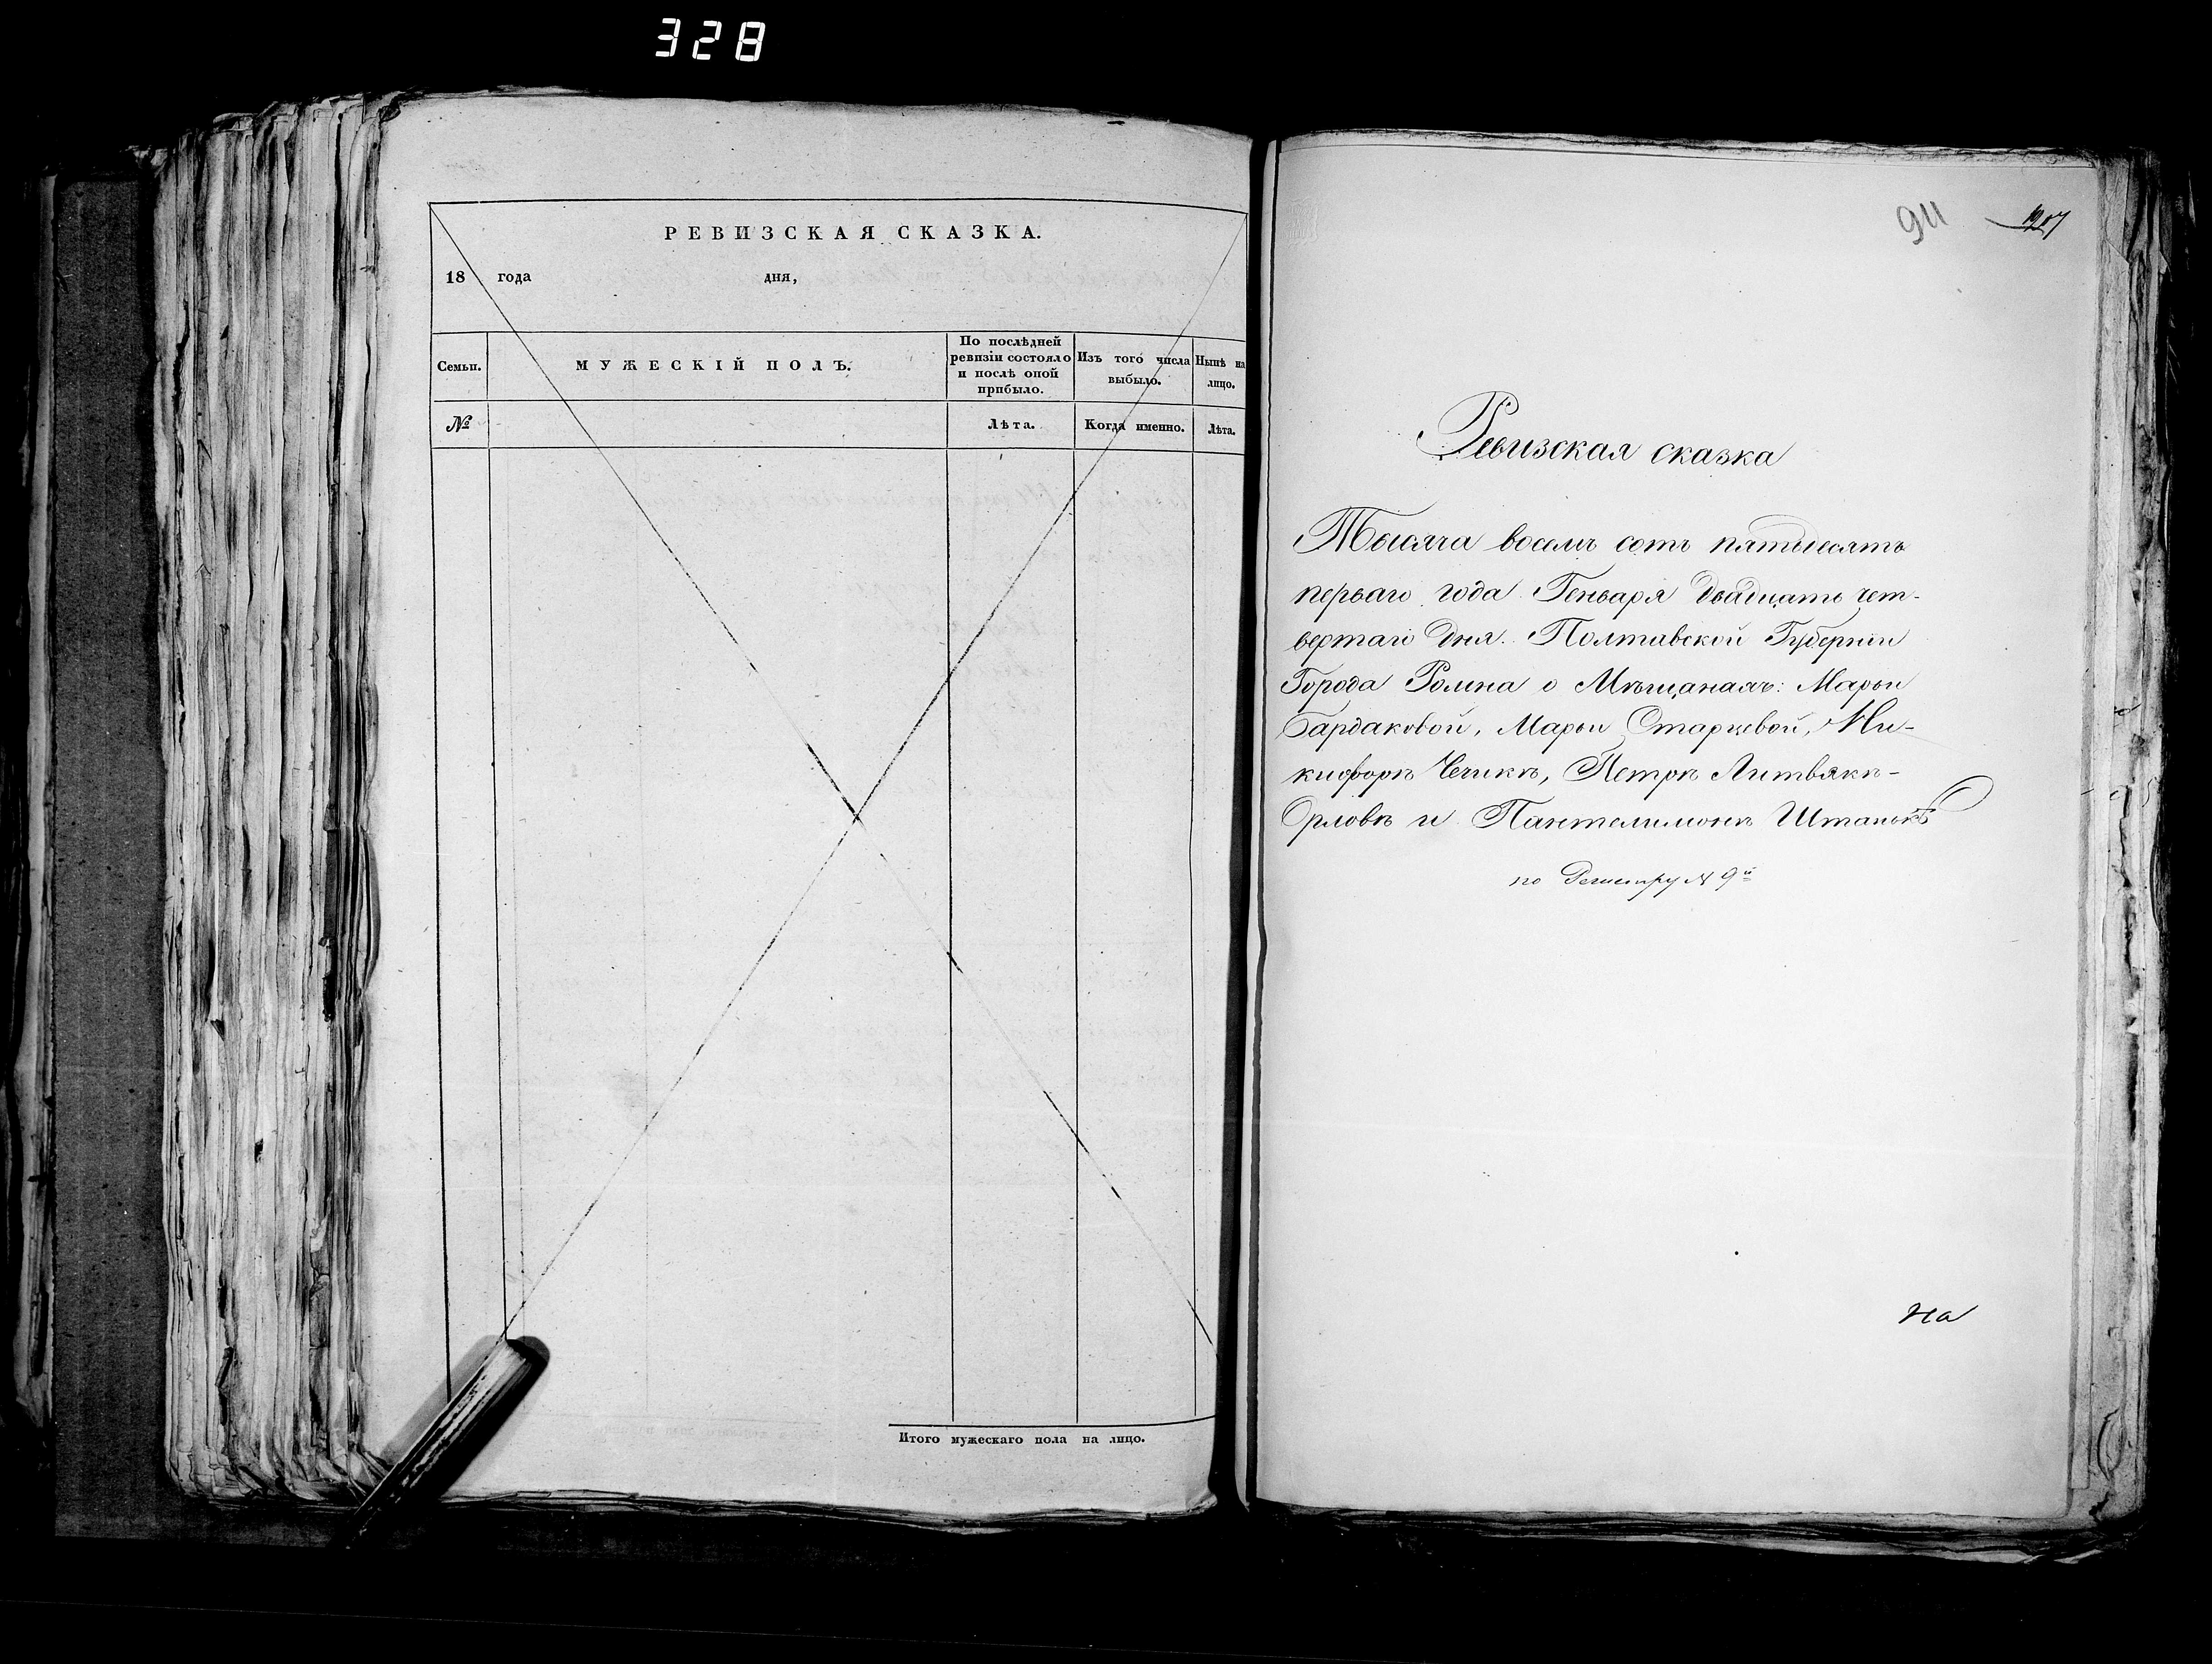 328
РЕВИЗСКАЯ СКАЗКА.
18 года дня,
Семьи.
МУЖЕСКІЙ ПОЛЪ.
По послѣдней ревизіи состояло и послѣ оной прибыло.
Изъ того числа выбыло.
Нынѣ на лицо.
№
Лѣта.
Когда именно.
Лѣта.
Итого мужескаго пола на лицо.
Ревизская сказка
Тысяча восемь сотъ пятдесятъ
перваго года Генваря двадцать чет-
вертаго дня. Полтавской Губерніи
Города Ромна о Мѣщанахъ: Марьи
Бардаковой, Марьи Старцевой, Ни-
кифорѣ Чечикѣ, Петрѣ Литвякѣ-
Орловѣ и Пантелимонѣ Штанькѣ
по Регистру № 9й
на